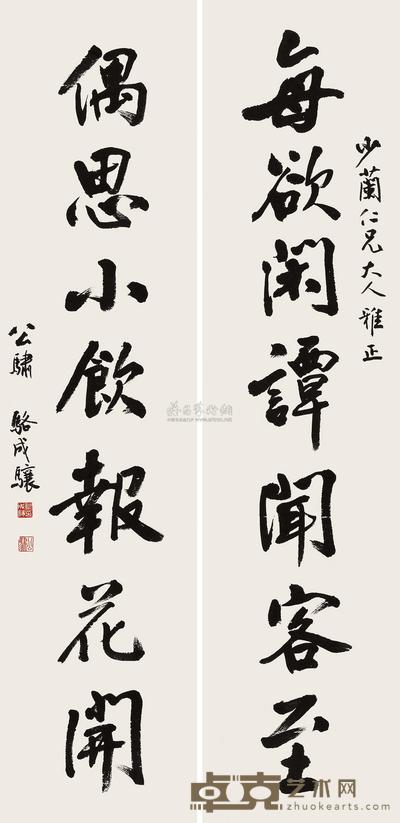 少蘭仁兄大人雅正
每欲閑譚聞客至
偶思小飲報花開
公驌 駱成驤
卓克艺术网
zhuokearts.com